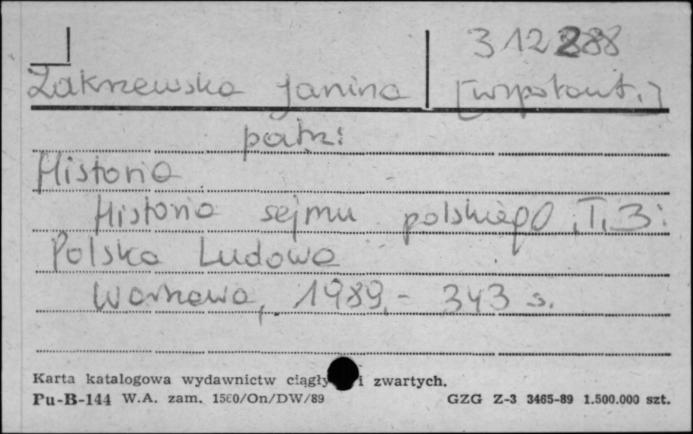 312288
Zakrzewska Janina [współaut.]
patrz:
Historia
Historia sejmu polskiego. T. 3:
Polska Ludowa
Warszawa, 1989.- 343 s.
Karta katalogowa wydawnictw ciągły i zwartych.
Pu-B-144 W.A. zam. 1560/On/DW/89 GZG Z-3 3465-89 1.500.000 szt.